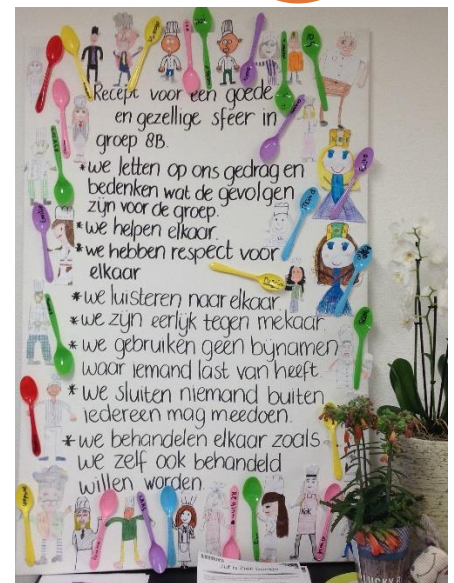 Recept voor een goede
en gezellige sfeer in
groep 8B.
*we letten op ons gedrag en
bedenken wat de gevolgen
zijn voor de groep.
*we helpen elkaar.
*we hebben respect voor
elkaar
*we luisteren naar elkaar
*we zijn eerlijk tegen mekaar
*we gebruiken geen bijnamen
waar iemand last van heeft
*we sluiten niemand buiten
iedereen mag meedoen.
*we behandelen elkaar zoals
we zelf ook behandeld
willen worden.